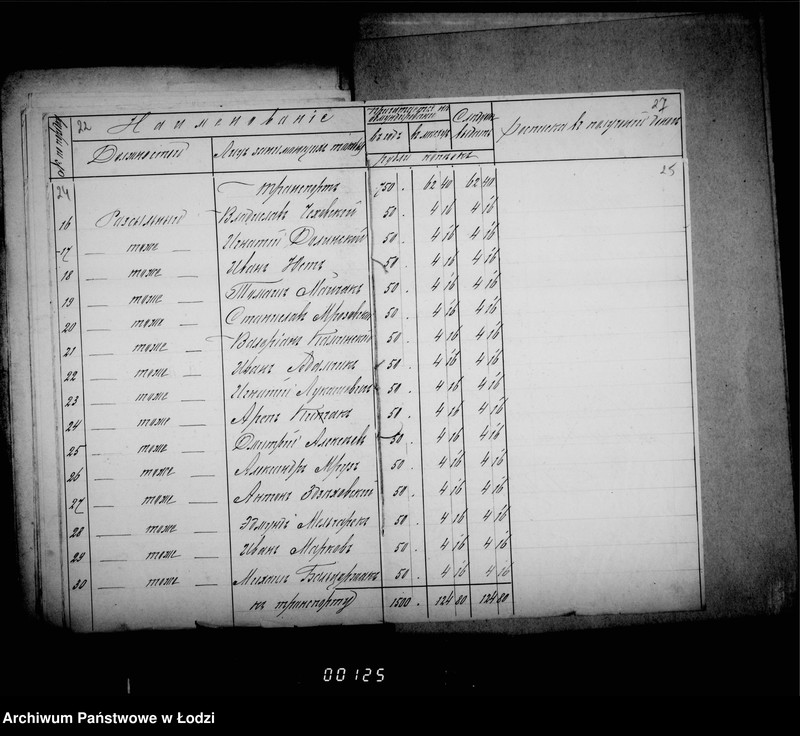 22 27
Наименованiе
Причитается на обмундированiе
Слѣдуетъ выдать
Росписка въ полученiи денегъ
Должностей Лицъ занимающихъ таковыя въ годъ въ мѣсяцъ
рубли копѣек
24 Транспортъ 750. 62 40 62 40 25
16 Разсыльный Владиславъ 50. 4 16 4 16
17 — тоже — Игнатiй Долинскiй 50. 4 16 4 16
18 — тоже — Иванъ Юсть 50. 4 16 4 16
19 — тоже — 50. 4 16 4 16
20 — тоже — Станиславъ Мрозовскiй 50. 4 16 4 16
21 — тоже — Валерiанъ Калинскiй 50. 4 16 4 16
22 — тоже — Иванъ Адамекъ 50. 4 16 4 16
23 — тоже — Игнатiй Лукашевичъ 50. 4 16 4 16
24 — тоже — 50. 4 16 4 16
25 — тоже — Дмитрiй Алексѣевъ 50. 4 16 4 16
26 — тоже — Александръ 50. 4 16 4 16
27 — тоже — Антонъ Здзеховскiй 50. 4 16 4 16
28 — тоже — Эдмундъ 50. 4 16 4 16
29 — тоже — Иванъ Марковъ 50. 4 16 4 16
30 — тоже — 50. 4 16 4 16
къ транспорту 1500. 124 80 124 80
00125
Archiwum Państwowe w Łodzi